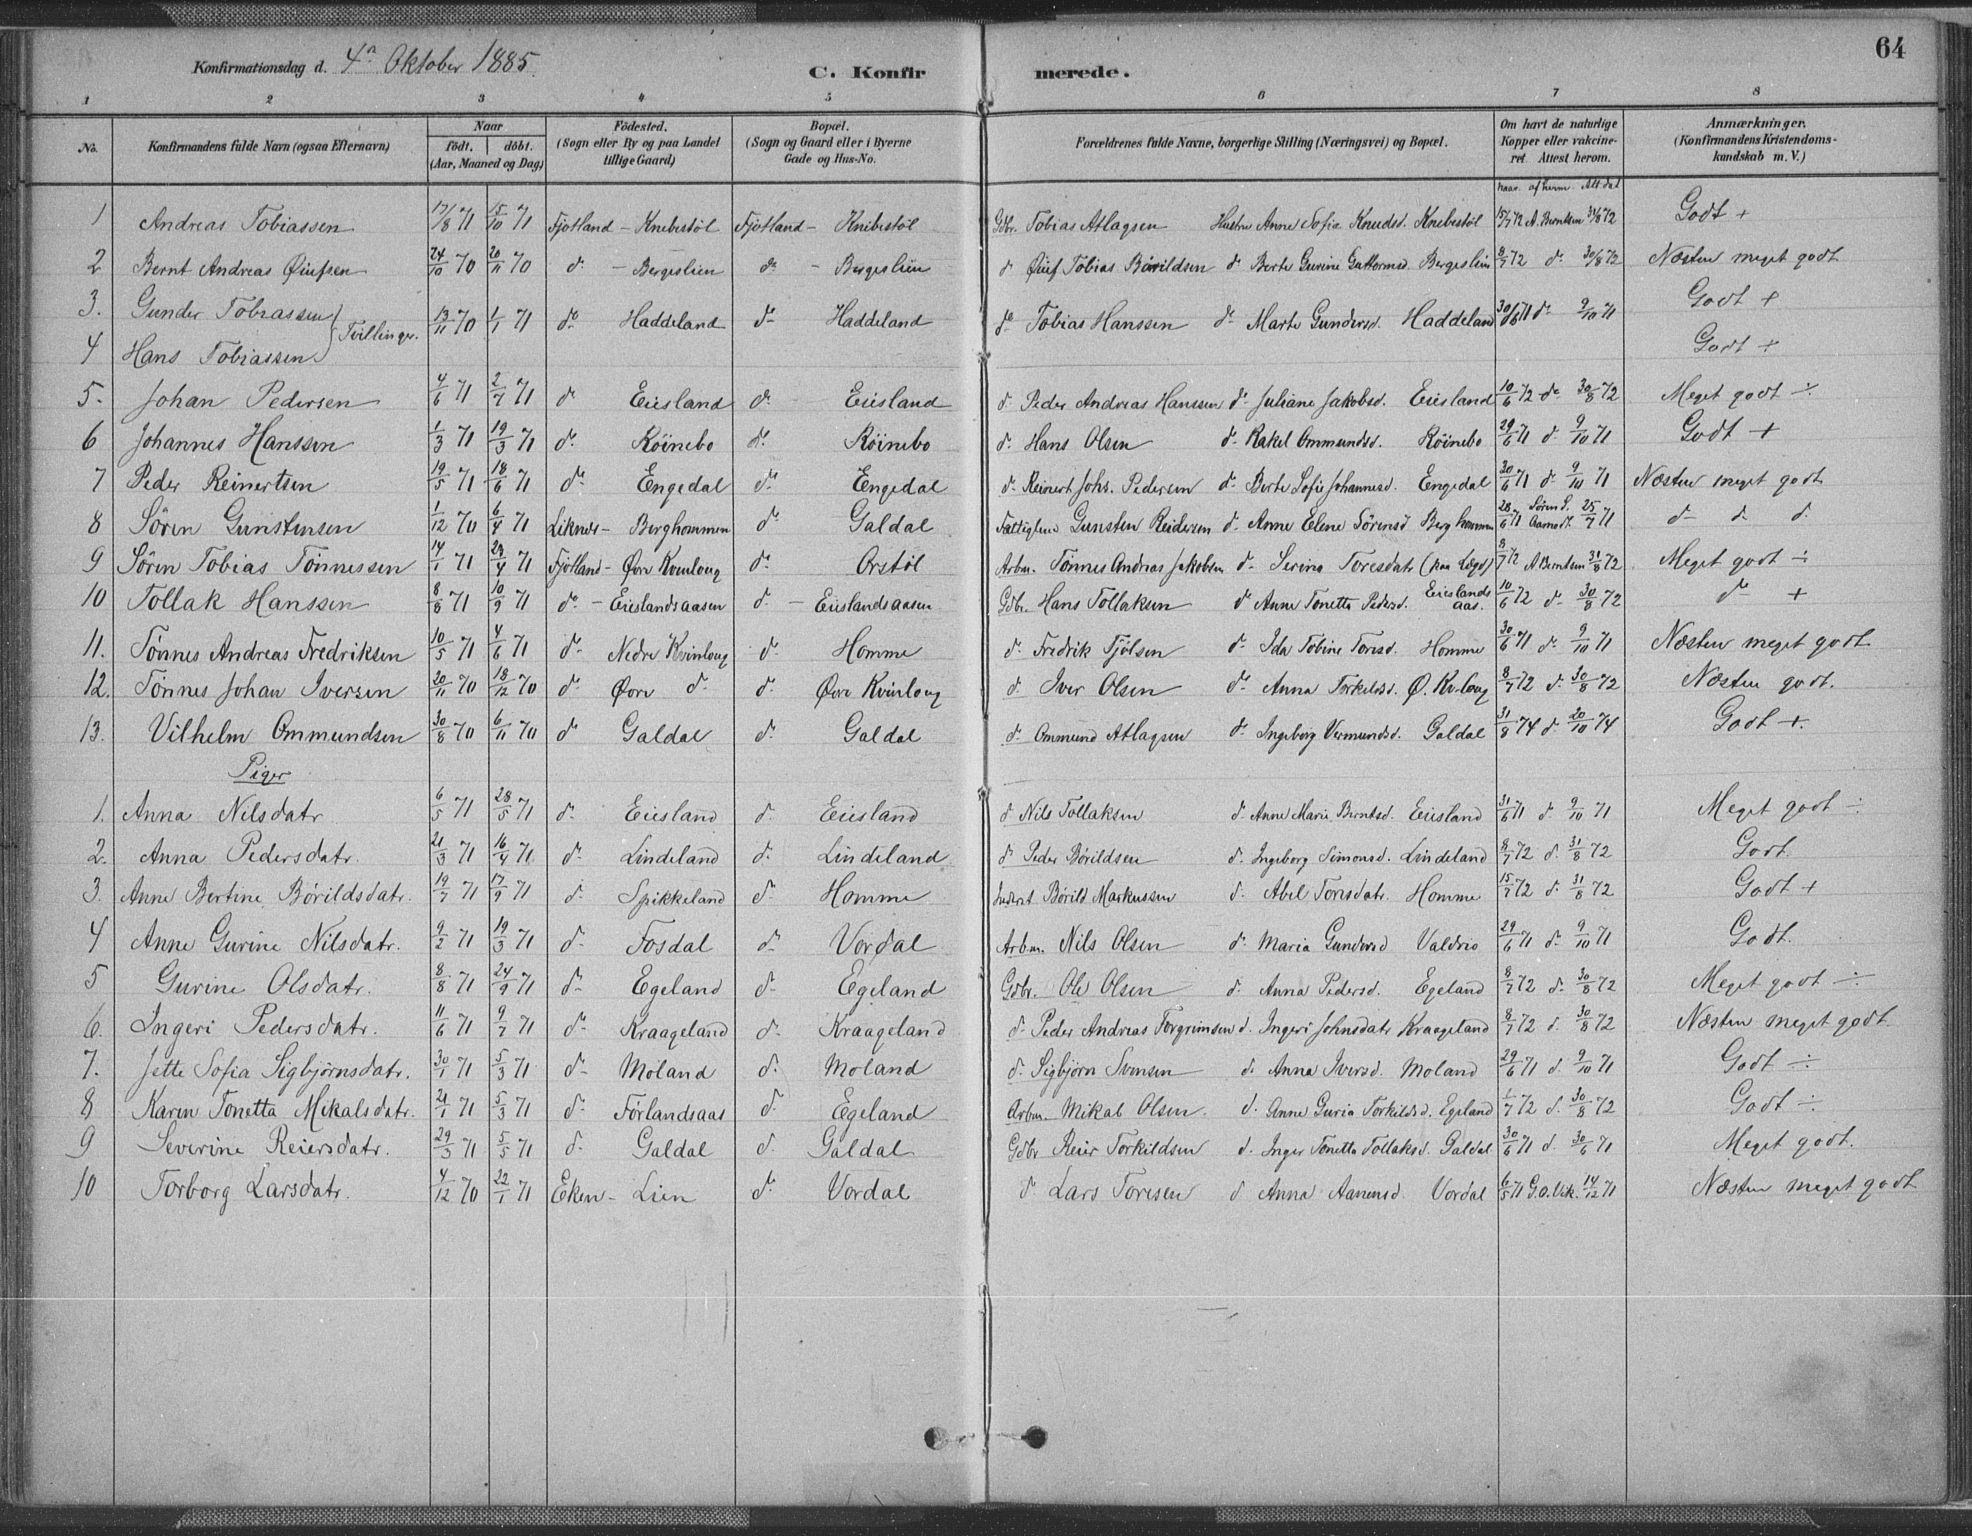 64
Konfirmationsdag d. 4de Oktober 1885.
C. Konfirmerede.
1 2 3 4 5 6 7 8
No. Konfirmandens fulde Navn (ogsaa Efternavn) Naar födt. döbt. (Aar, Maaned og Dag) Födested. (Sogn eller By og paa Landet tillige Gaard) Bopæl. (Sogn og Gaard eller i Byerne Gade og Hus-No. Forældrenes fulde Navne, borgerlige Stilling (Næringsvei) og Bopæl. Om havt de naturlige Kopper eller vakcineret Attest herom. Anmærkninger. (Konfirmandens Kristendomskundskab m. V.)
naar af hvem Att. dat
1 Andreas Tobiassen 17/8 71 15/10 71 Fjotland - Knebestöl Fjotland - Knebestöl Gdbr. Tobias Atlagsen Hustru Anne Sofie Knudsd. Knebestöl 15/7 72 A. Berntsen 31/8 72 Godt +
2 Bernt Andreas Øiufsen 24/10 70 20/11 70 do - Bergeslien do - Bergeslien do Øiuf Tobias Börildsen do Berte Gurine Guttormsd. Bergeslien 8/7 72 do 30/8 72 Næsten meget godt
3. Gunder Tobiassen } Tvillinger. 13/11 70 1/1 71 do Haddeland do Haddeland do Tobias Hanssen do Marte Gundersd. Haddeland 30/6 71 do 9/10 71 Godt +
4 Hans Tobiassen Godt +
5. Johan Pedersen 4/6 71 2/7 71 do Eiesland do Eiesland do Peder Andreas Hanssen do Juliane Jakobsd. Eiesland 10/6 72 do 30/8 72 Meget godt ÷
6 Johannes Hanssen 1/3 71 19/3 71 do Röinebo do Röinebo do Hans Olsen do Rakel Ommundsd. Röinebo 29/6 71 do 9/10 71 Godt +
7 Peder Reinertsen 19/5 71 18/6 71 do Engedal do Engedal do Reinert Johs. Pedersen do Berte Sofie Johannesd. Engedal 30/6 71 do 9/10 71 Næsten meget godt
8 Sören Gunstensen 1/12 70 6/4 71 Liknes - Berghommen do Galdal Fattiglem Gunsten Reidersen do Anne Elene Sörensd Berghommen 28/6 71 Sören S. Aamodt. 25/7 71 do do do
9 Sören Tobias Tönnessen 14/1 71 23/4 71 Fjotland - Øvre Kvinlong do Orstöl Arbm. Tönnes Andreas Jakobsen do Serina Toresdatr (paa Lægd) 8/7 72 A Berntsen 31/8 72 Meget godt ÷
10 Tollak Hanssen 8/8 71 10/9 71 do - Eieslandsaasen do - Eieslandsaasen Gdbr. Hans Tollaksen do Anne Tonetta Pedersd. Eieslandsaas. 10/6 72 do 30/8 72 do +
11. Tönnes Andreas Fredriksen 10/5 71 4/6 71 do Nedre Kvinlong do Homme do Fredrik Tjölsen do Ida Tobine Toresd. Homme 30/6 71 do 9/10 71 Næsten meget godt
12. Tönnes Johan Iversen 20/11 70 18/12 70 do Øvre do do Øvre Kvinlong do Iver Olsen do Anna Torkildsd. Ø. Kv.long 8/7 72 do 30/8 72 Næsten godt.
13. Vilhelm Ommundsen 30/8 70 6/11 70 do Galdal do Galdal do Ommund Atlagsen do Ingeborg Vermundsd. Galdal 31/8 74 do 20/10 74 Godt +
Piger
1. Anna Nilsdatr 6/5 71 28/5 71 do Eiesland do Eiesland do Nils Tollaksen do Anne Marie Berntsd. Eiesland 31/6 71 do 9/10 71 Meget godt ÷
2. Anna Pedersdatr. 21/3 71 16/4 71 do Lindeland do Lindeland do Peder Börildsen do Ingeborg Simonsd. Lindeland 8/7 72 do 31/8 72 Godt.
3. Anne Bertine Börildsdatr. 19/7 71 17/9 71 do Spikkeland do Homme Inderst Börild Markussen do Abel Toresdatr. Homme 15/7 72 do 31/8 72 Godt +
4 Anne Gurine Nilsdatr. 9/2 71 19/3 71 do Fosdal do Vordal Arbm. Nils Olsen do Maria Gundersd Valdrio 29/6 71 do 9/10 71 Godt.
5 Gurine Olsdatr. 8/8 71 24/9 71 do Egeland do Egeland Gdbr. Ole Olsen do Anna Pedersd. Egeland 8/7 72 do 30/8 72 Meget godt ÷
6. Ingeri Pedersdatr. 11/6 71 9/7 71 do Kraageland do Kraageland do Peder Andreas Torgrimsen do Ingeri Johnsdatr Kraageland 8/7 72 do 30/8 72 Næsten meget godt
7. Jette Sofia Sigbjørnsdatr. 30/1 71 5/3 71 do Moland do Moland do Sigbjørn Svensen do Anna Iversd. Moland 29/6 71 do 9/10 71 Godt ÷
8 Karen Tonetta Mikalsdatr. 21/1 71 5/3 71 do Förlandsaas do Egeland Arbm. Mikal Olsen do Anne Guria Torkildsd. Egeland 1/7 72 do 30/8 72 Godt ÷
9 Severine Reiersdatr. 29/3 71 5/5 71 do Galdal do Galdal Gdbr Reier Torkildsen do Inger Tonetta Tollaksd. Galdal 30/6 71 do 30/6 71 Meget godt.
10 Torborg Larsdatr. 4/12 70 22/1 71 Eken - Lien do Vordal do Lars Toresen do Anna Aanensd. Vordal 6/5 71 G.O. Vik. 14/12 71 Næsten meget godt